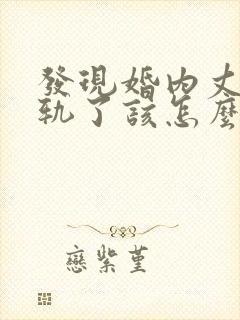 發現婚內丈
軌了該怎麼
戀紫堇